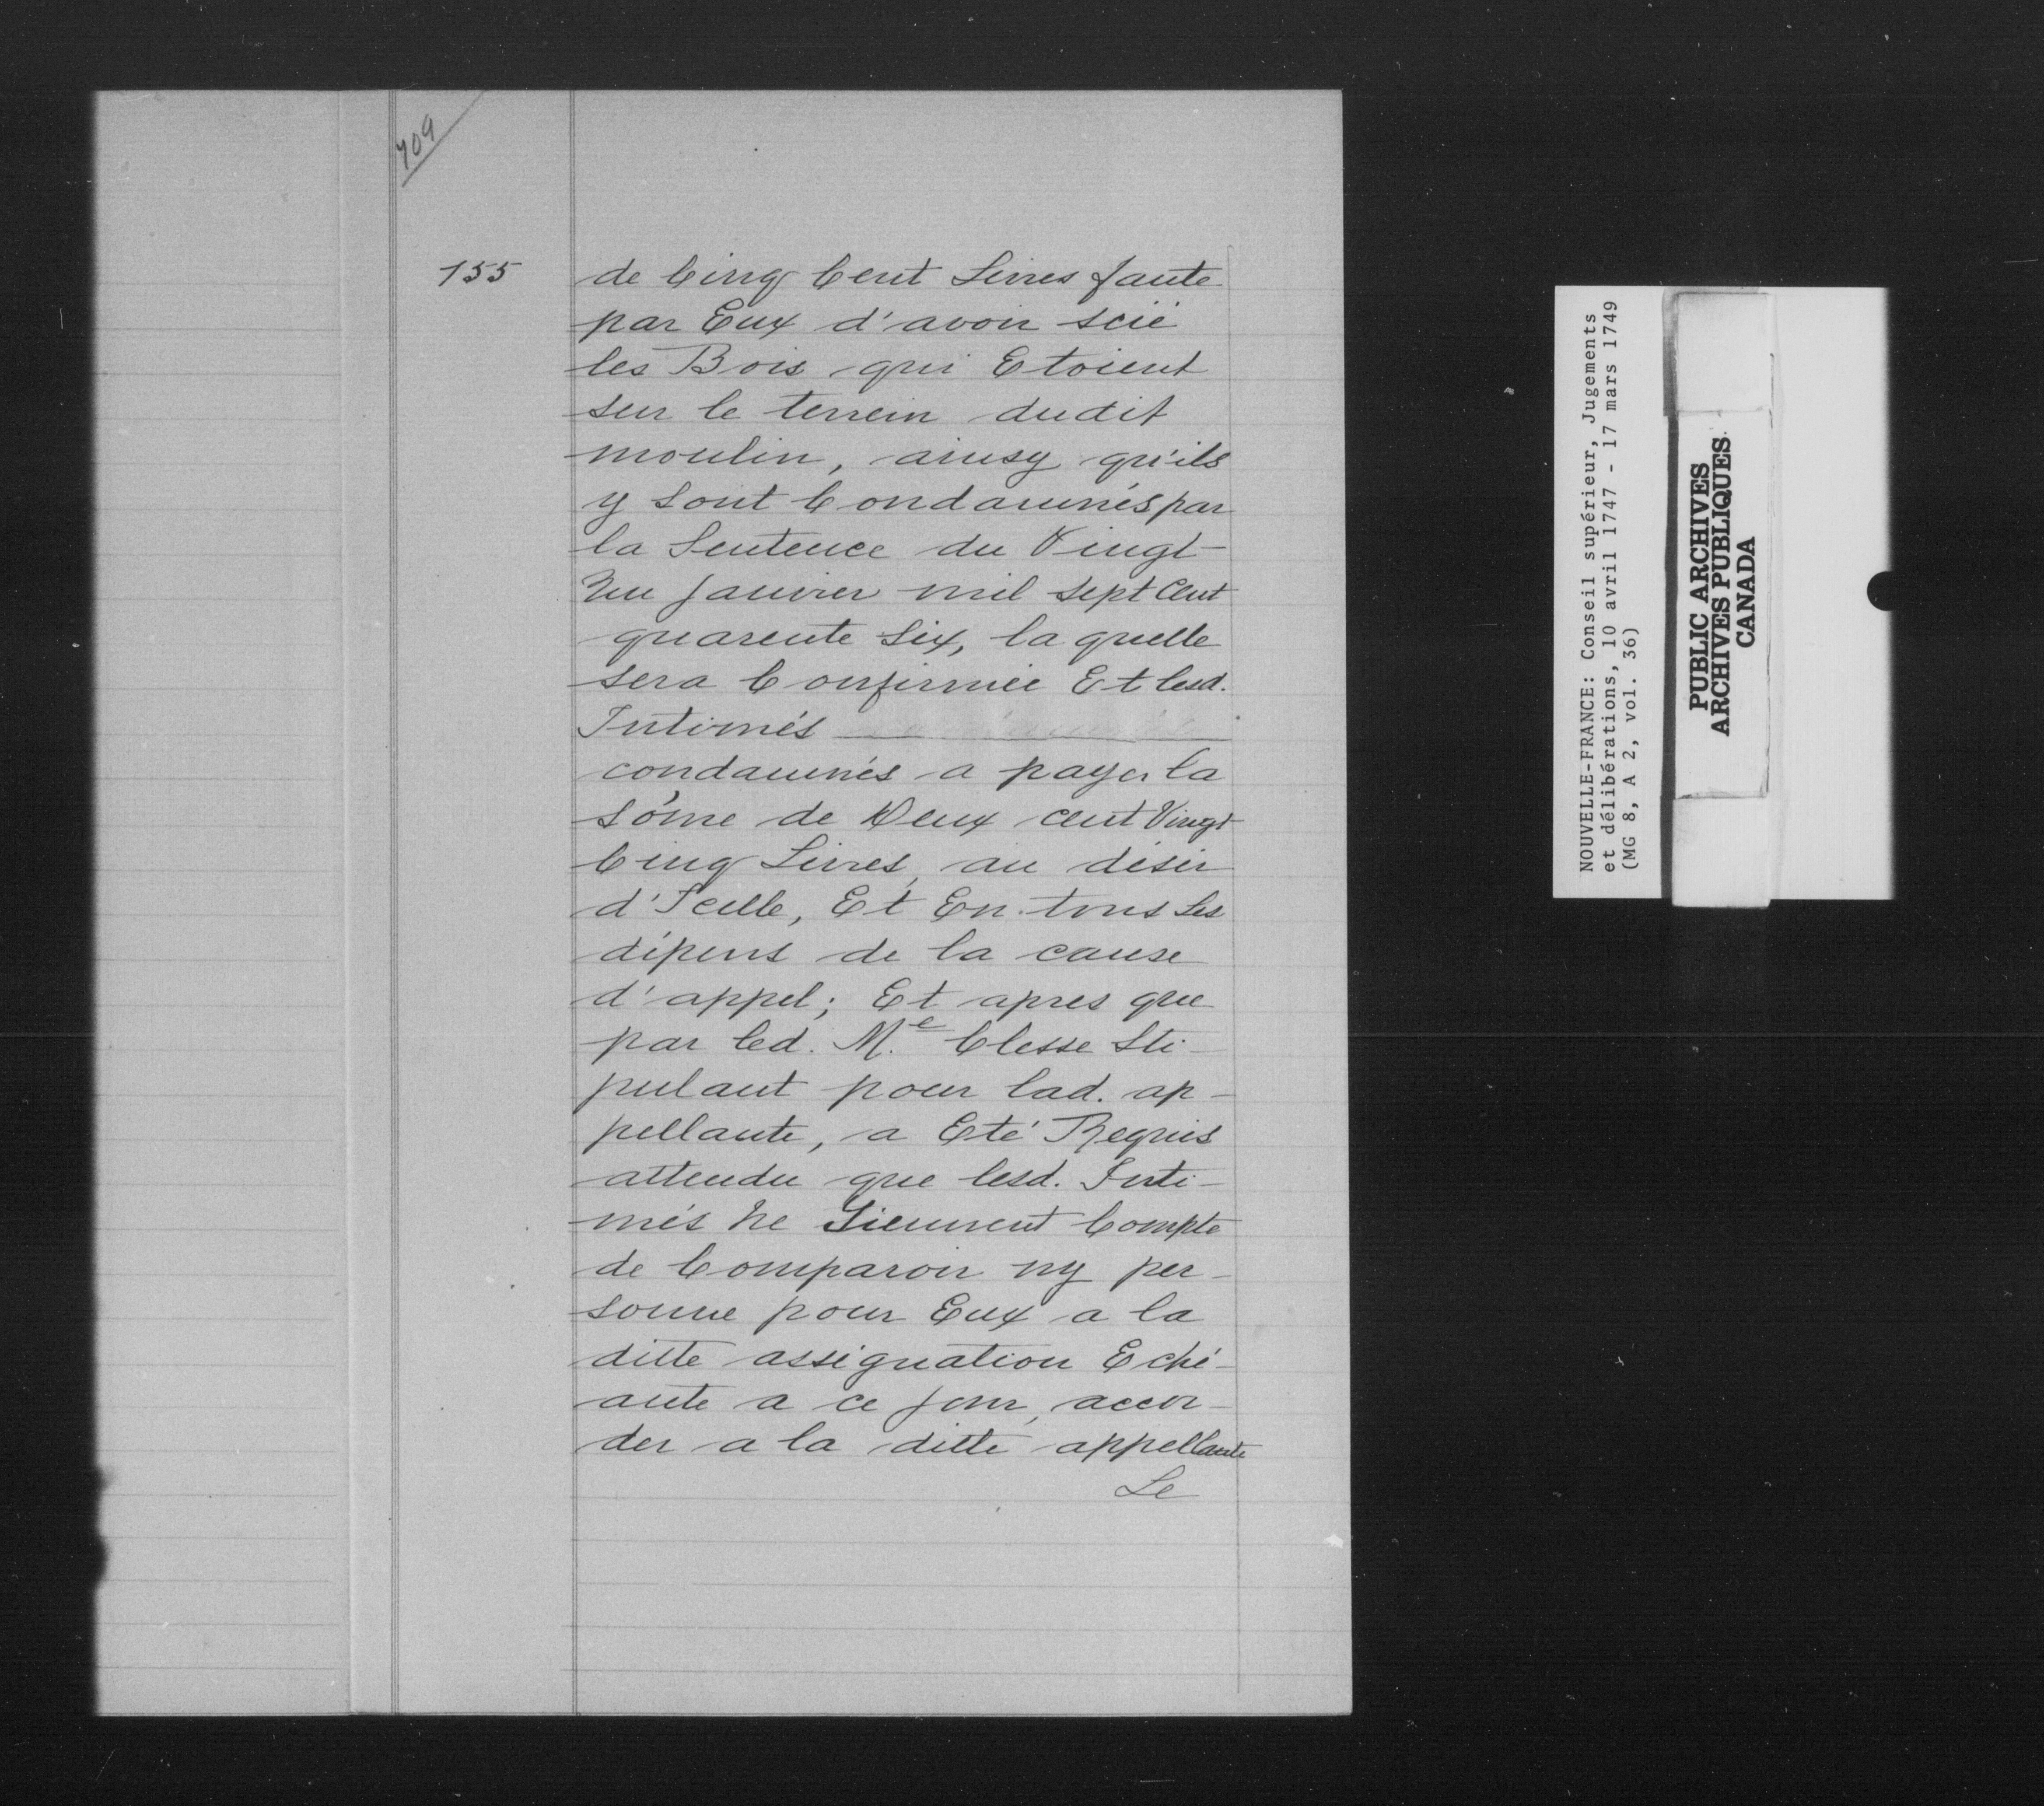 709
155
de Cinq Cent Livres faute
par Eux d'avoir scié
les Bois qui Etoient
sur le terrein dudit
moulin, ainsy qu'ils
y sont Condamnés par
la Sentence du Vingt-
un Janvier mil sept Cent
quarente six, la quelle
sera Confirmée Et lesd.
Intimés
condamnés a payer la
sôme de Deux cent Vingt
Cinq Livres, au désir
d'Icelle, Et En tous Les
dépens de la cause
d'appel; Et apres que
par led. Me Clesse Sti-
pulant pour lad. ap-
pellante, a Eté Requis
attendu que lesd. Inti-
més ne Tiennent Compte
de Comparoir ny per-
sonne pour Eux a la
ditte assignation Eché-
ante a ce jour, accor-
der a la ditte appellante
Le
NOUVELLE-FRANCE: Conseil supérieur, Jugements
et délibérations, 10 avril 1747 - 17 mars 1749
(MG 8, A 2, vol. 36)
PUBLIC ARCHIVES
ARCHIVES PUBLIQUES
CANADA